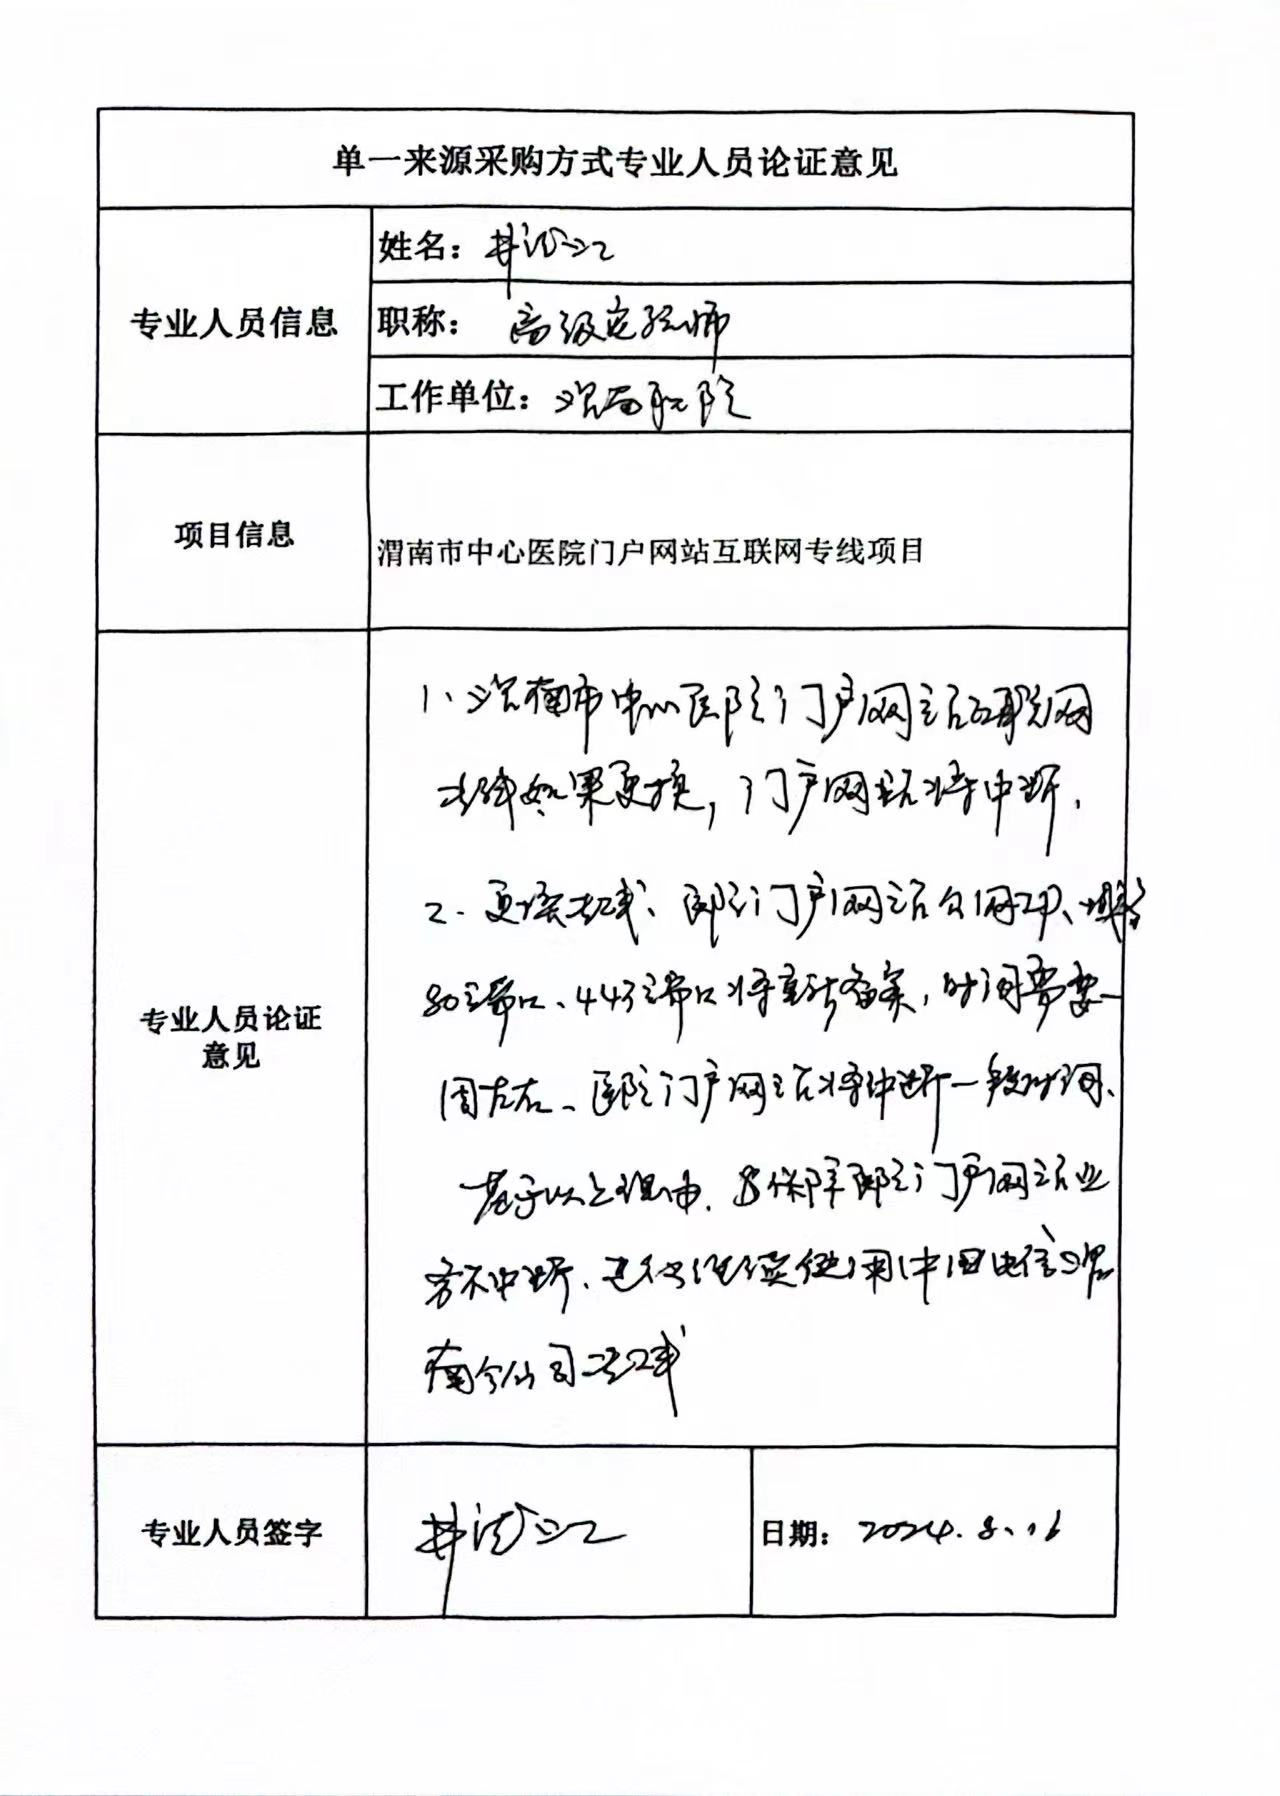 单一来源采购方式专业人员论证意见
专业人员信息
姓名：井
职称：高级实验师
工作单位：渭南职院
项目信息
渭南市中心医院门户网站互联网专线项目
专业人员论证
意见
1、渭南市中心医院门户网站互联网
专线如果更换，门户网站将中断.
2、更换专线、医院门户网站公网IP、域名
80端口、443端口将重新备案，时间需要一
周左右、医院门户网站将中断一段时间、
基于以上理由.为保障医院门户网站业
务不中断、建议继续使用中国电信渭
南分公司专线
专业人员签字
井
日期：2024.8.16